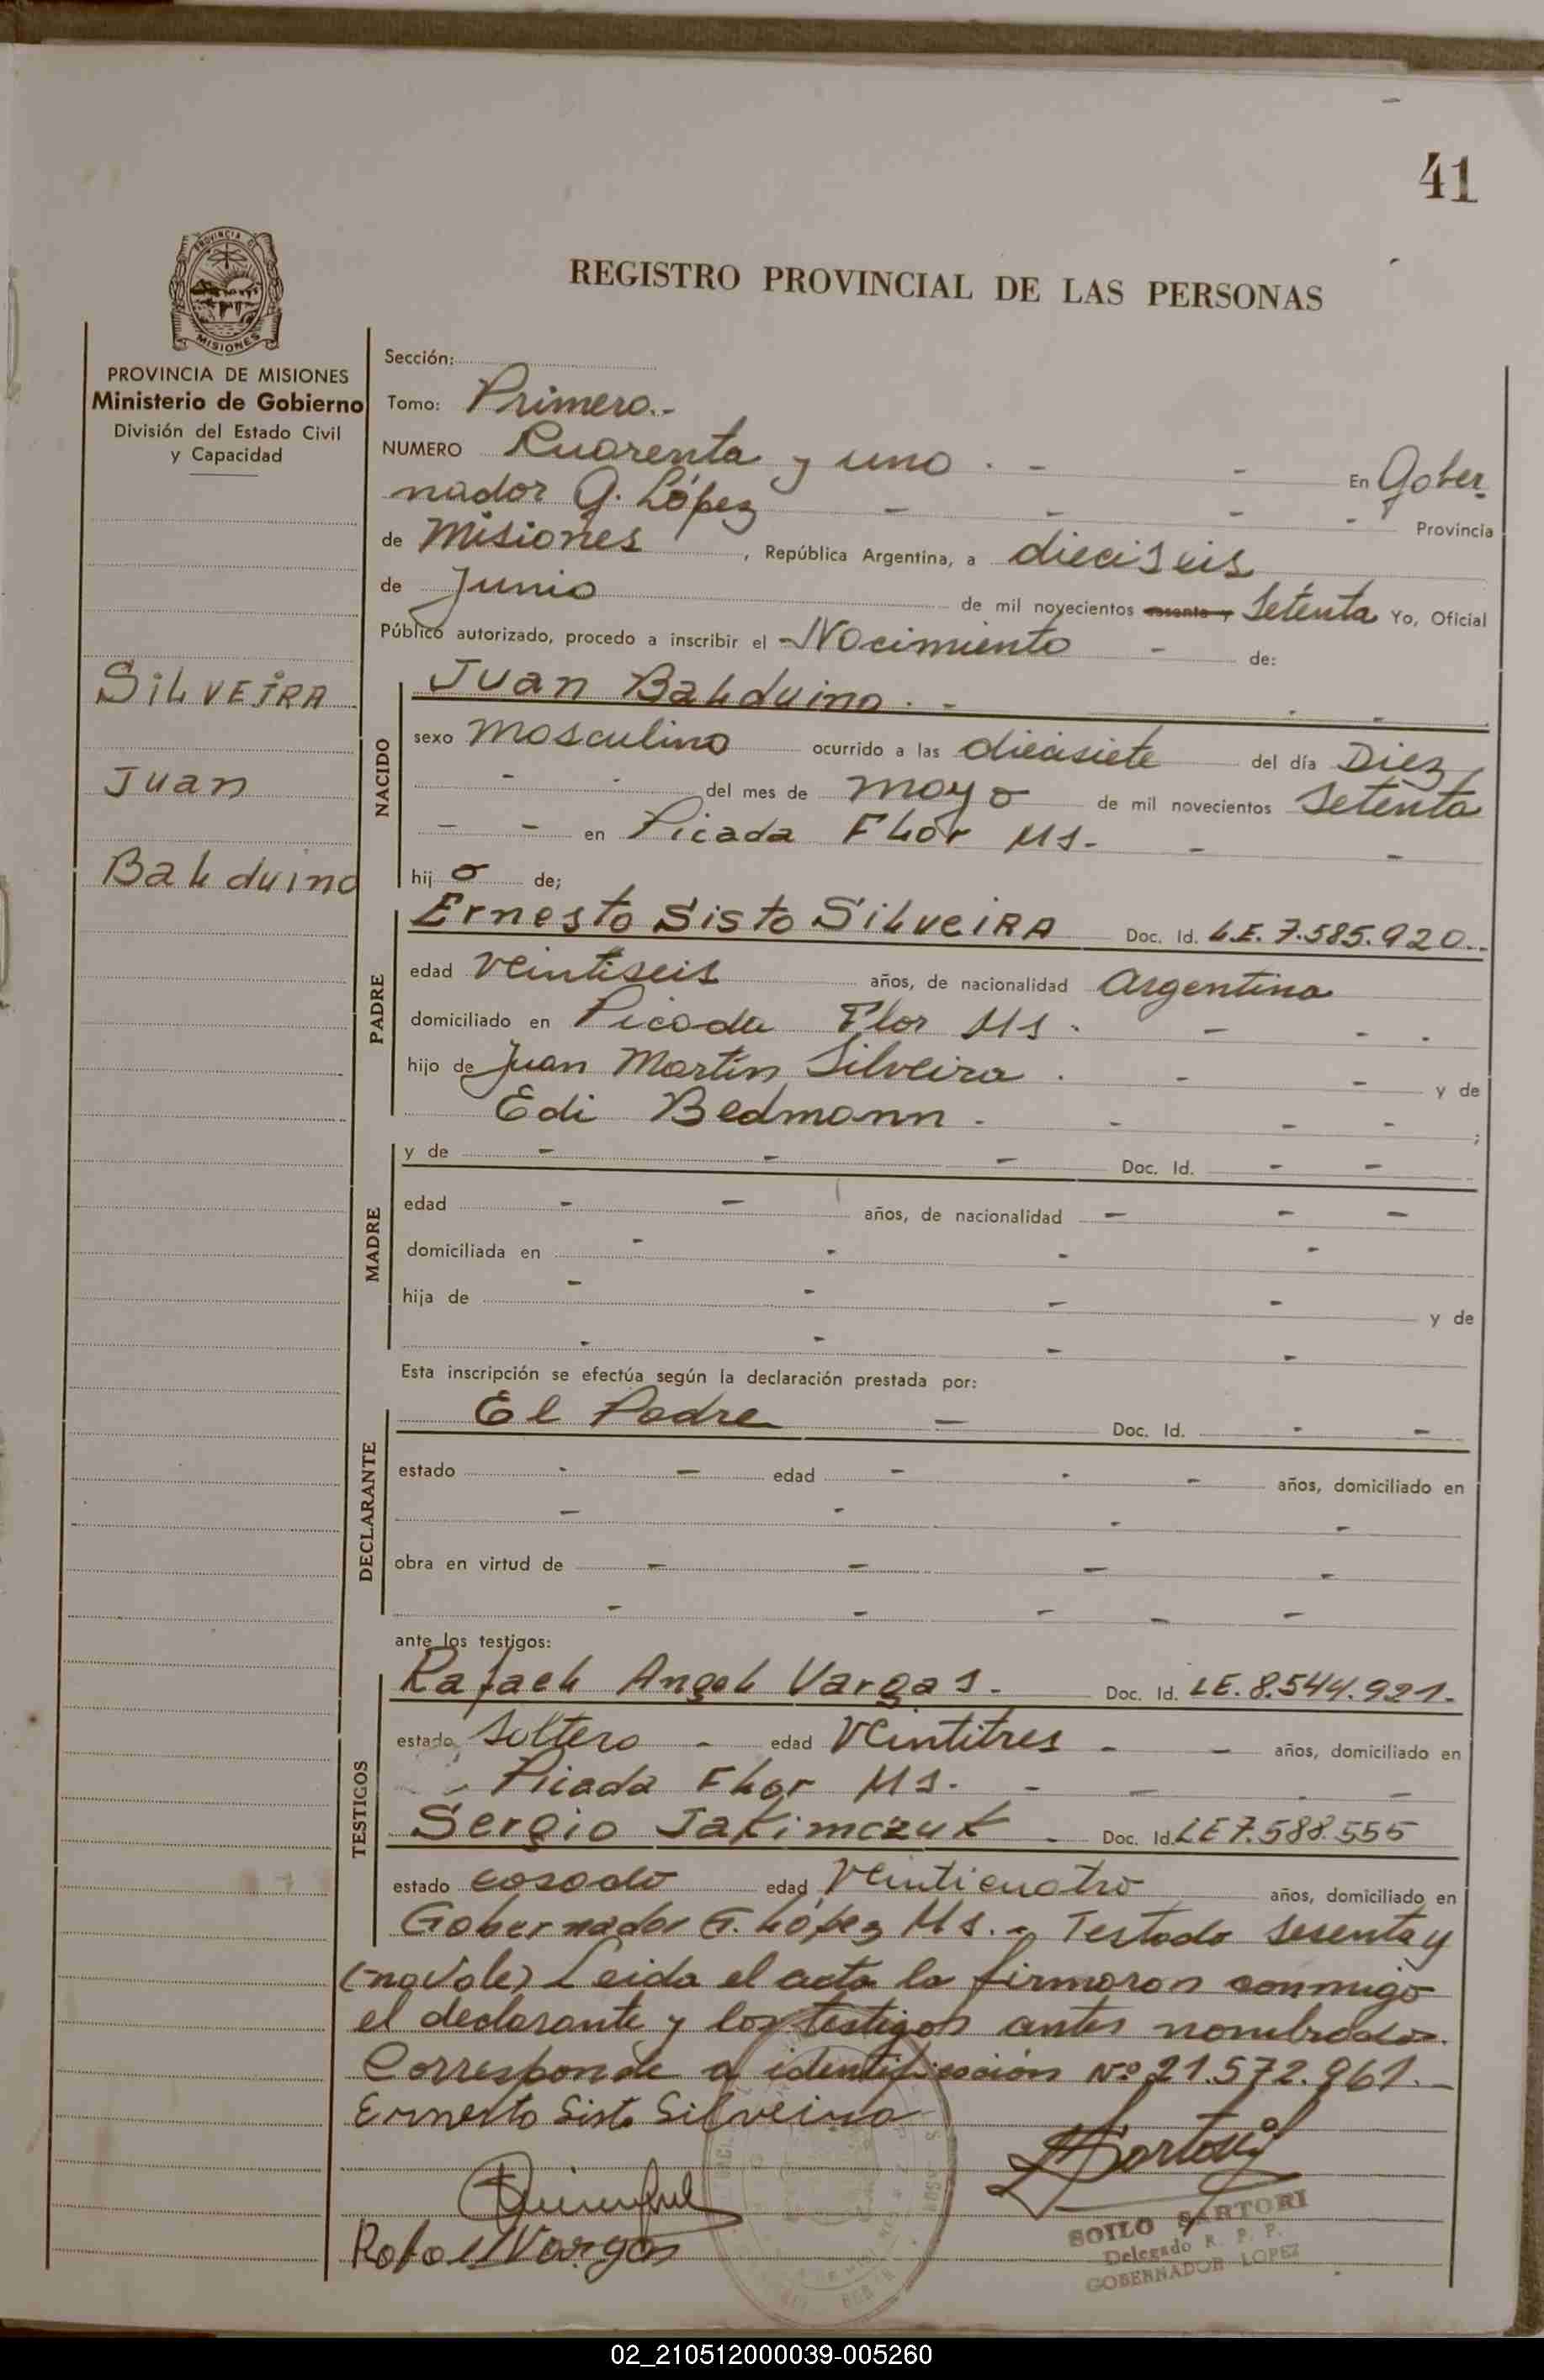 41
REGISTRO PROVINCIAL DE LAS PERSONAS
PROVINCIA DE
MISIONES
PROVINCIA DE MISIONES
Ministerio de Gobierno
División del Estado Civil
y Capacidad
SILVEIRA
Juan
Balduino
Sección:
Tomo: Primero.-
NUMERO Cuarenta y uno . - - En Gober-
nador G. López - - - - Provincia
de Misiones , República Argentina, a dieciseis
de Junio de mil novecientos sesenta y Setenta Yo, Oficial
Público autorizado, procedo a inscribir el -Nacimiento - de:
NACIDO
Juan Balduino. -
sexo masculino ocurrido a las diecisiete del día Diez
- - del mes de mayo de mil novecientos setenta
- - en Picada Flor Ms. - -
hij o de;
PADRE
Ernesto Sisto SILVEIRA Doc. Id. L.E. 7.585.920.-
edad veintiseis años, de nacionalidad Argentina
domiciliado en Picada Flor Ms. - - -
hijo de Juan Martín Silveira . - - y de
Edi Bedmann - - - - ;
MADRE
y de - - - Doc. Id. - -
edad - - años, de nacionalidad - - -
domiciliada en - - - -
hija de - - - - y de
- - - -
Esta inscripción se efectúa según la declaración prestada por:
DECLARANTE
El Padre - Doc. Id. - -
estado - - edad - - - años, domiciliado en
- - - -
obra en virtud de - - - -
- - - - -
ante los testigos:
TESTIGOS
Rafael Angel Vargas. - Doc. Id. LE. 8.544.921.
estado soltero - edad veintitres - - años, domiciliado en
Picada Flor Ms. - - - -
Sergio Jakimczuk - Doc. Id. LE 7.588.555
estado casado edad veinticuatro años, domiciliado en
Gobernador G. López Ms. - Testado sesenta y
(no vale) Leida el acta la firmaron conmigo
el declarante y los testigos antes nombrados.
Corresponde a identificación Nº 21.572.961. -
Ernesto Sisto Silveira
Rafael Vargas
SOILO SARTORI
Delegado R. P. P.
GOBERNADOR LOPEZ
02_210512000039-005260